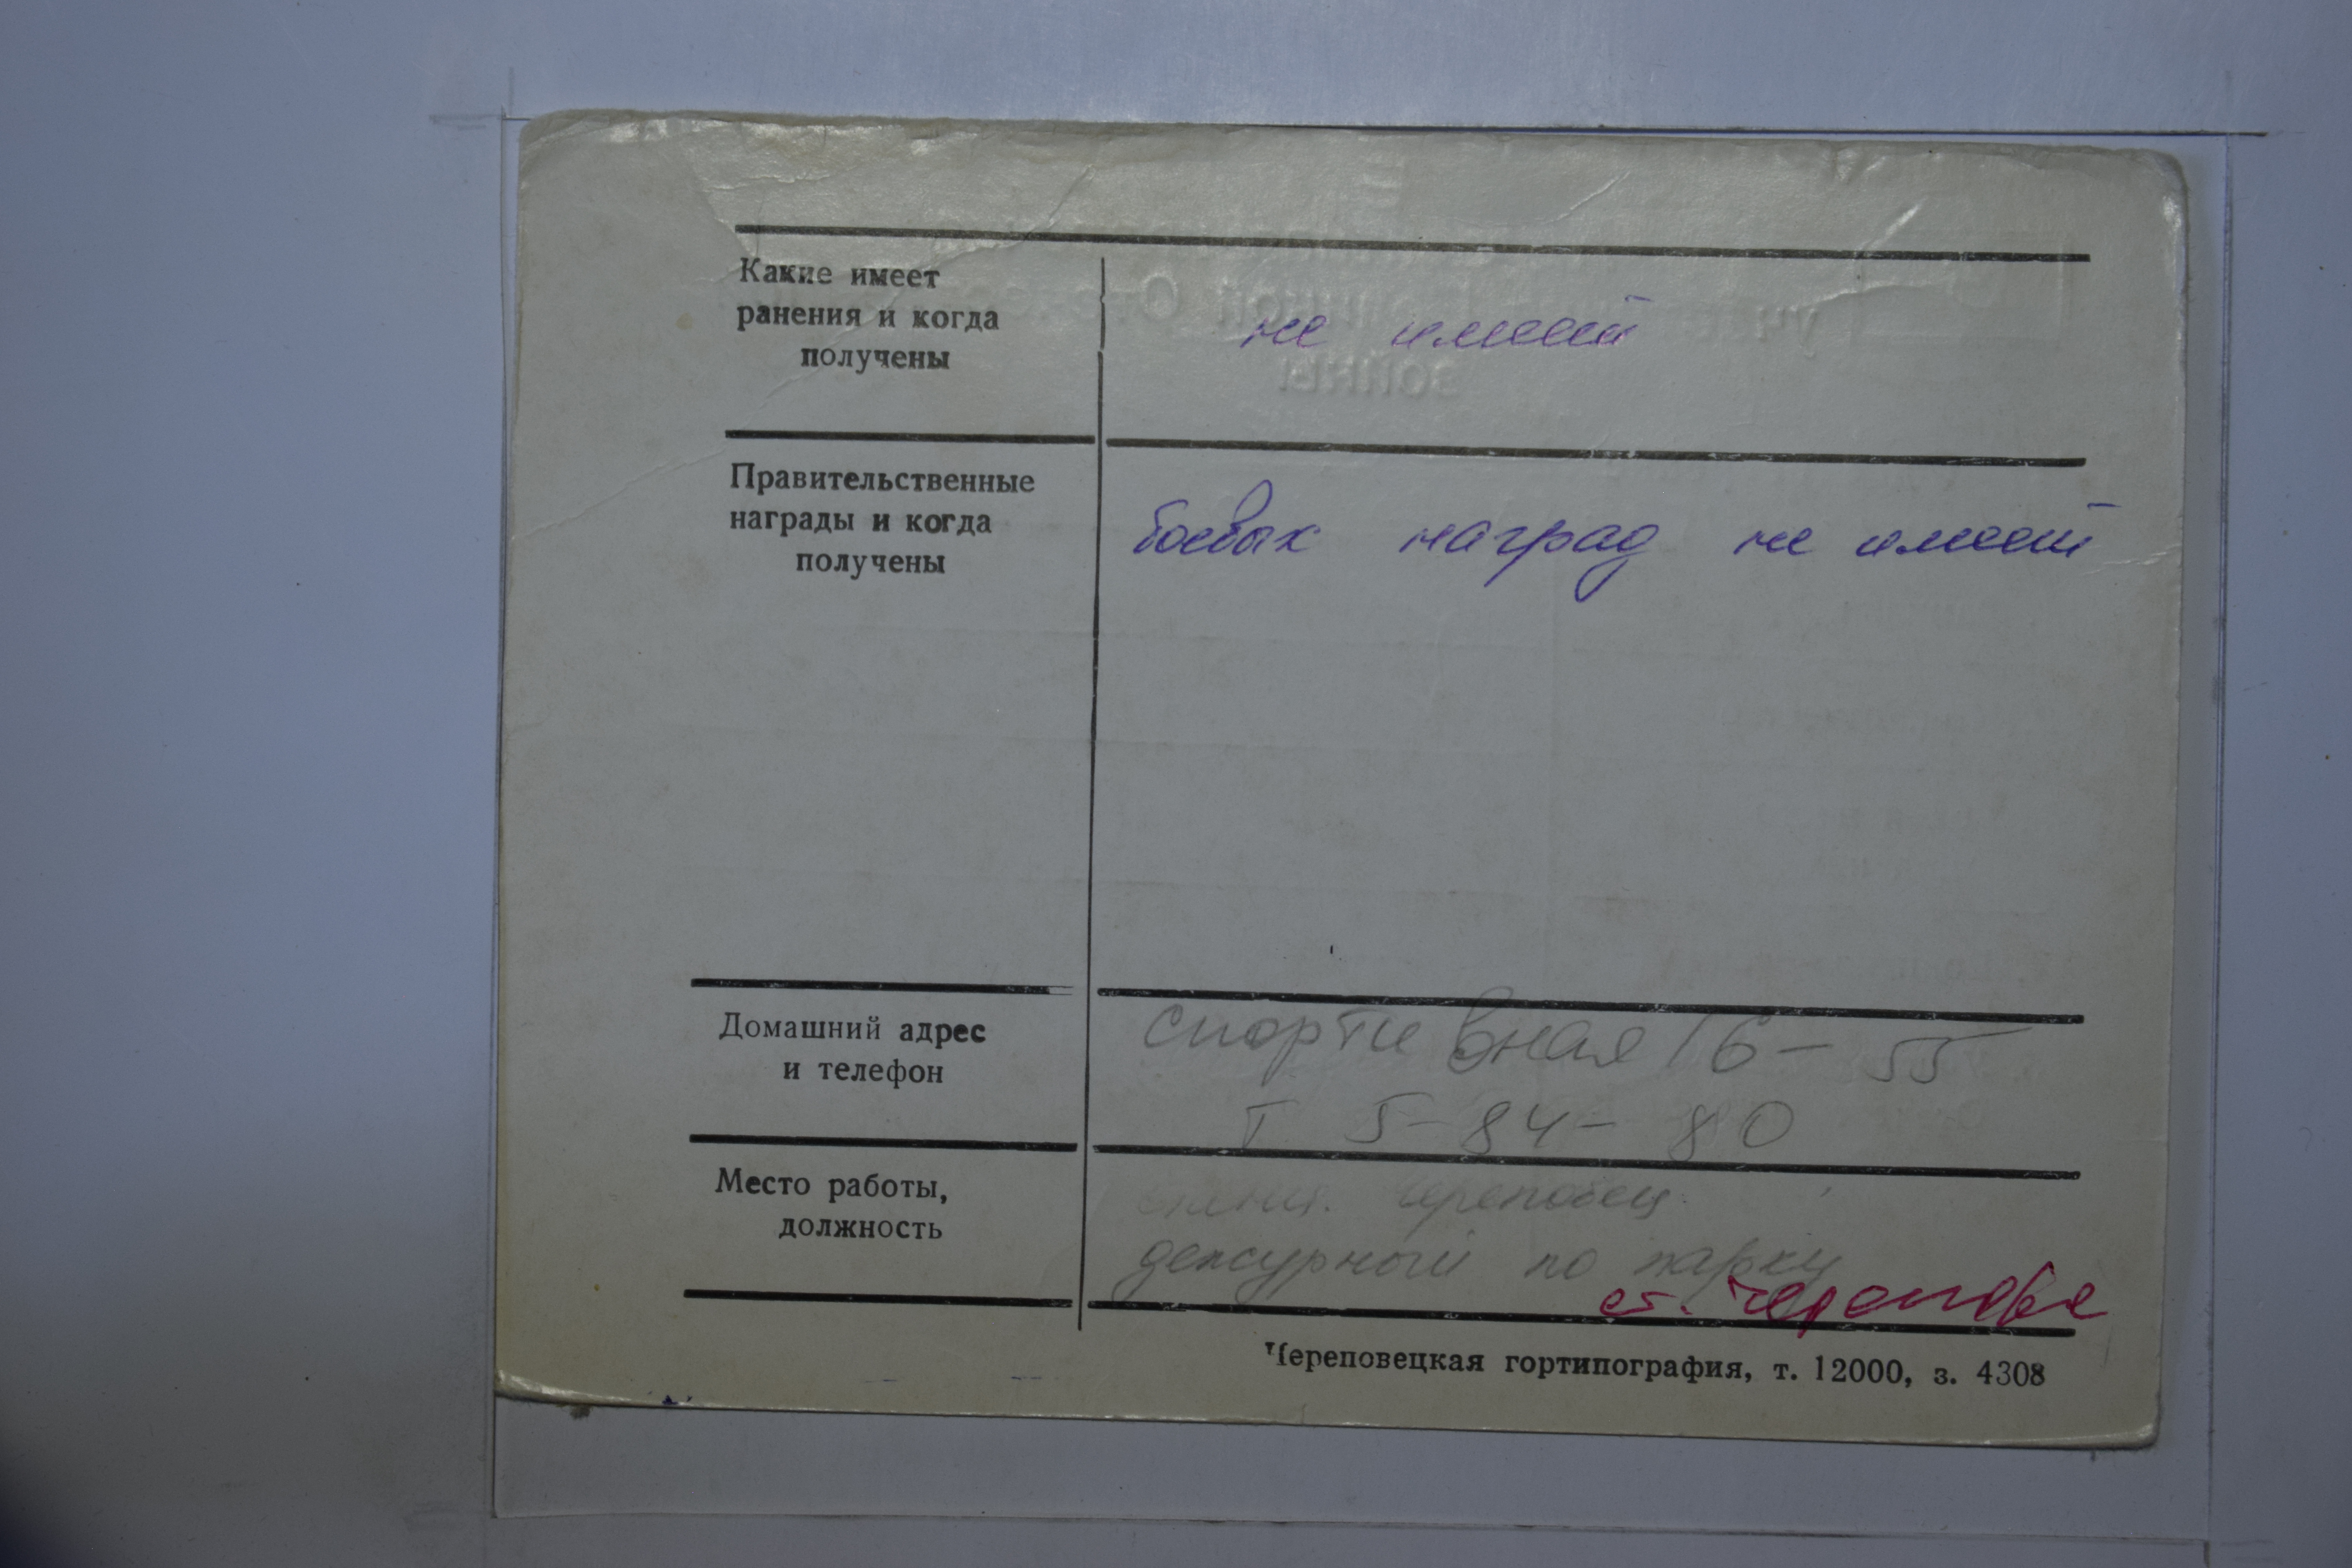 Какие имеет
ранения и когда
получены
не имеет
Правительственные
награды и когда
получены
боевых наград не имеет
Домашний адрес
и телефон
спортивная 16 - 55
т 5-84-80
Место работы,
должность
Череповец.
дежурный по парку
ст. Череповец
Череповецкая гортипография, т. 12000, з. 4308